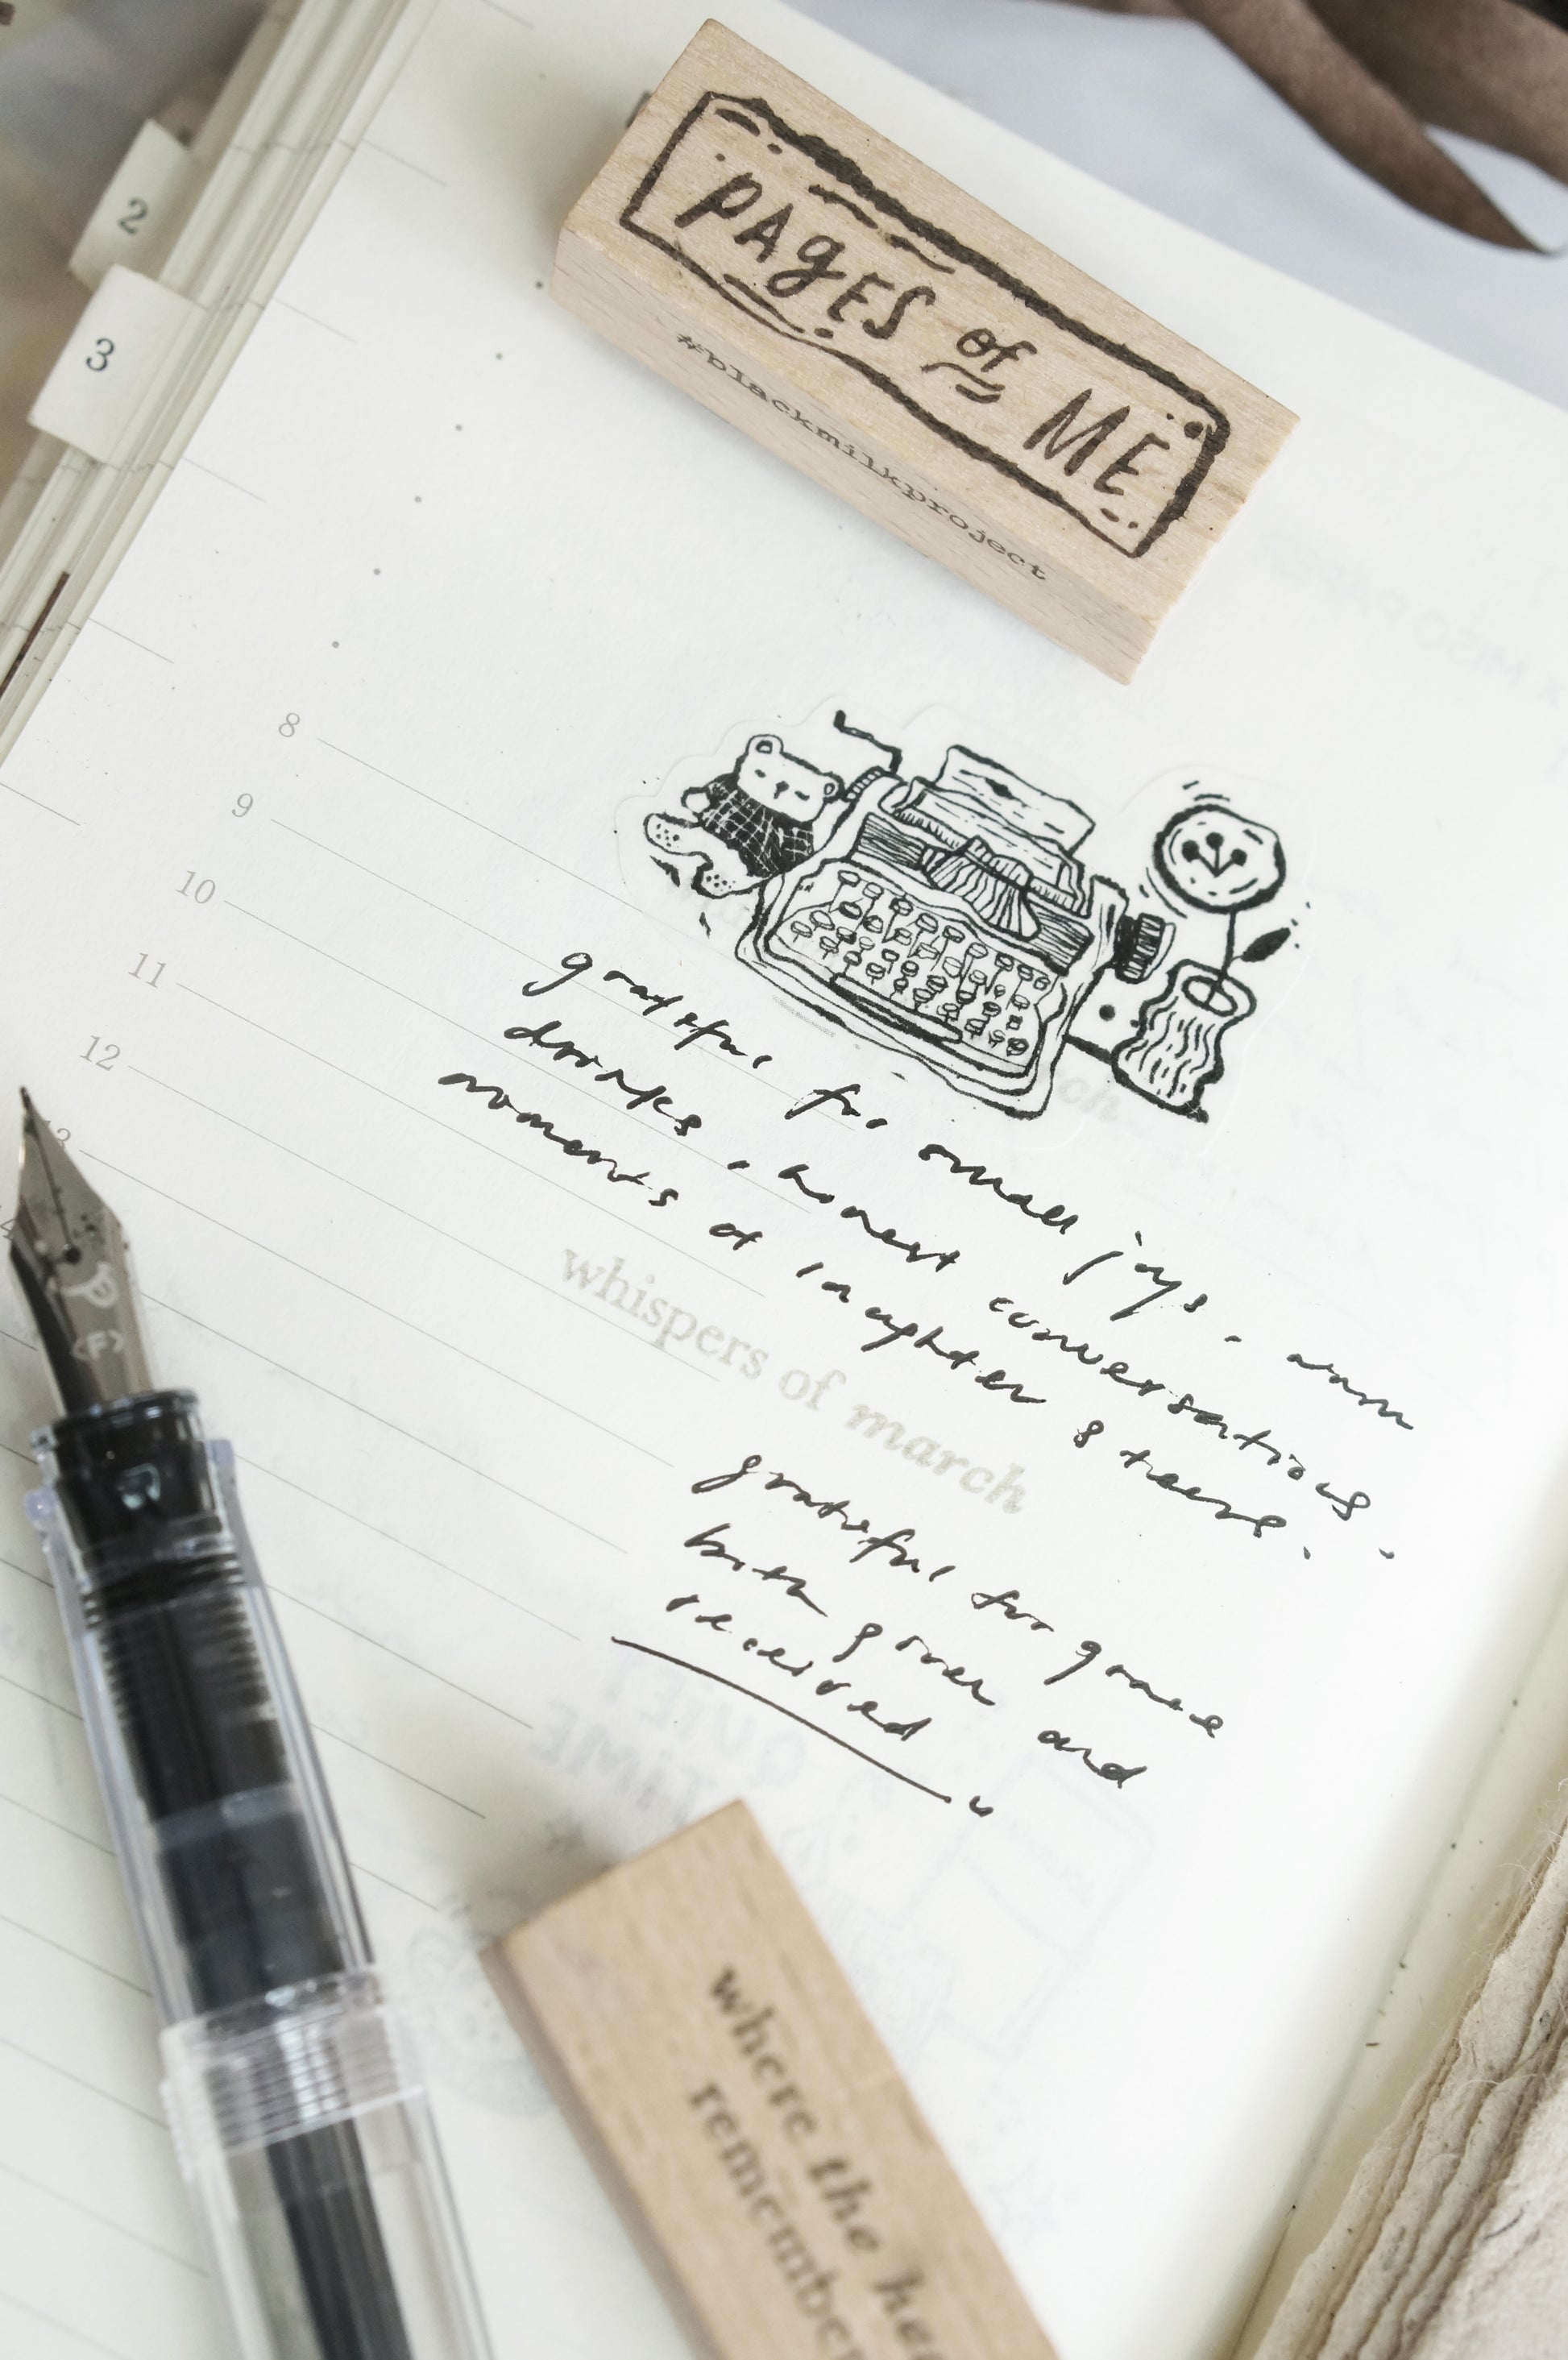 2
3
PAGES of ME
#blackmilkproject
8
9
10
11
12
13
grateful for small joys, warm
drinks, honest conversations,
moments of laughter & tears.
whispers of march
grateful for grace
both given and
received
QUIET
TIME
where the
remember